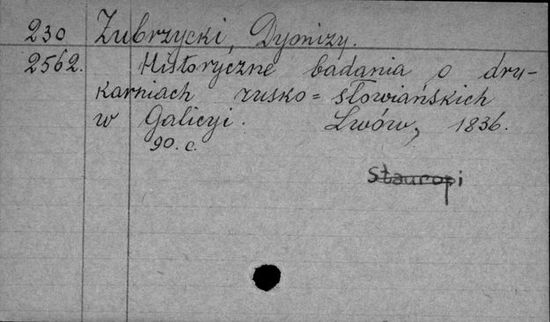 230 Zubrzycki, Dyonizy.
2562. Historyczne badania o dru-
karniach rusko=słowiańskich
w Galicyi. Lwów, 1836.
90. c.
Stauropi